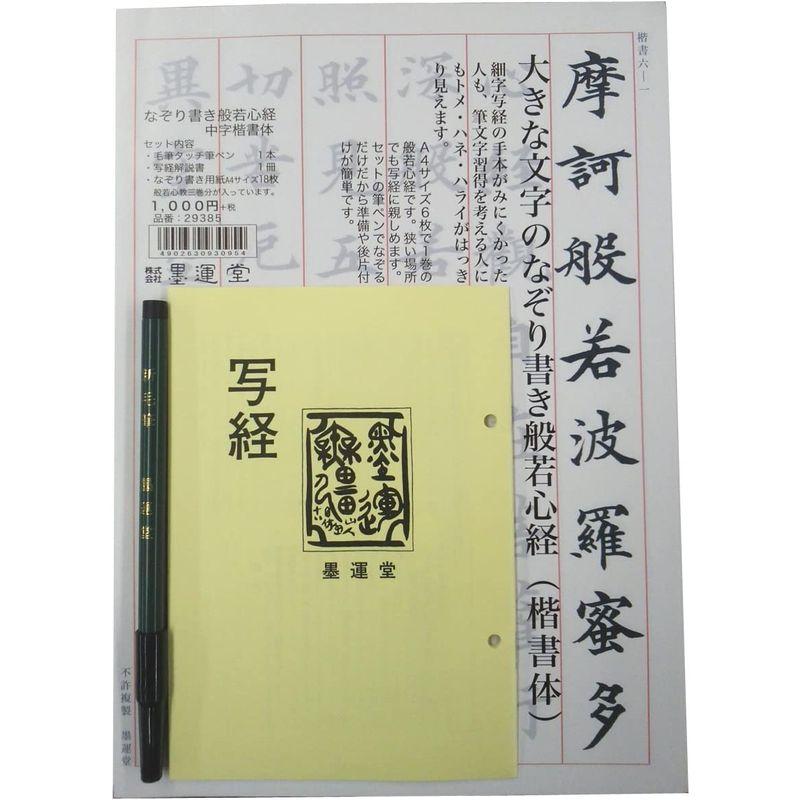 楷書六―一
摩訶般若波羅蜜多
大きな文字のなぞり書き般若心経（楷書体）
細字写経の手本がみにくかった
人も、筆文字習得を考える人に
もトメ・ハネ・ハライがはっき
り見えます。
A4サイズ6枚で1巻の
般若心経です。狭い場所
でも写経に親しめます。
セットの筆ペンでなぞる
だけだから準備や後片付
けが簡単です。
深
照見五
切
異
なぞり書き般若心経
中字楷書体
セット内容
・毛筆タッチ筆ペン 1本
・写経解説書 1冊
・なぞり書き用紙A4サイズ18枚
般若心教三巻分が入っています。
1,000円+税
品番：29385
4902630930954
株式会社 墨運堂
写経
墨運堂
新毛筆 墨運堂
不許複製 墨運堂